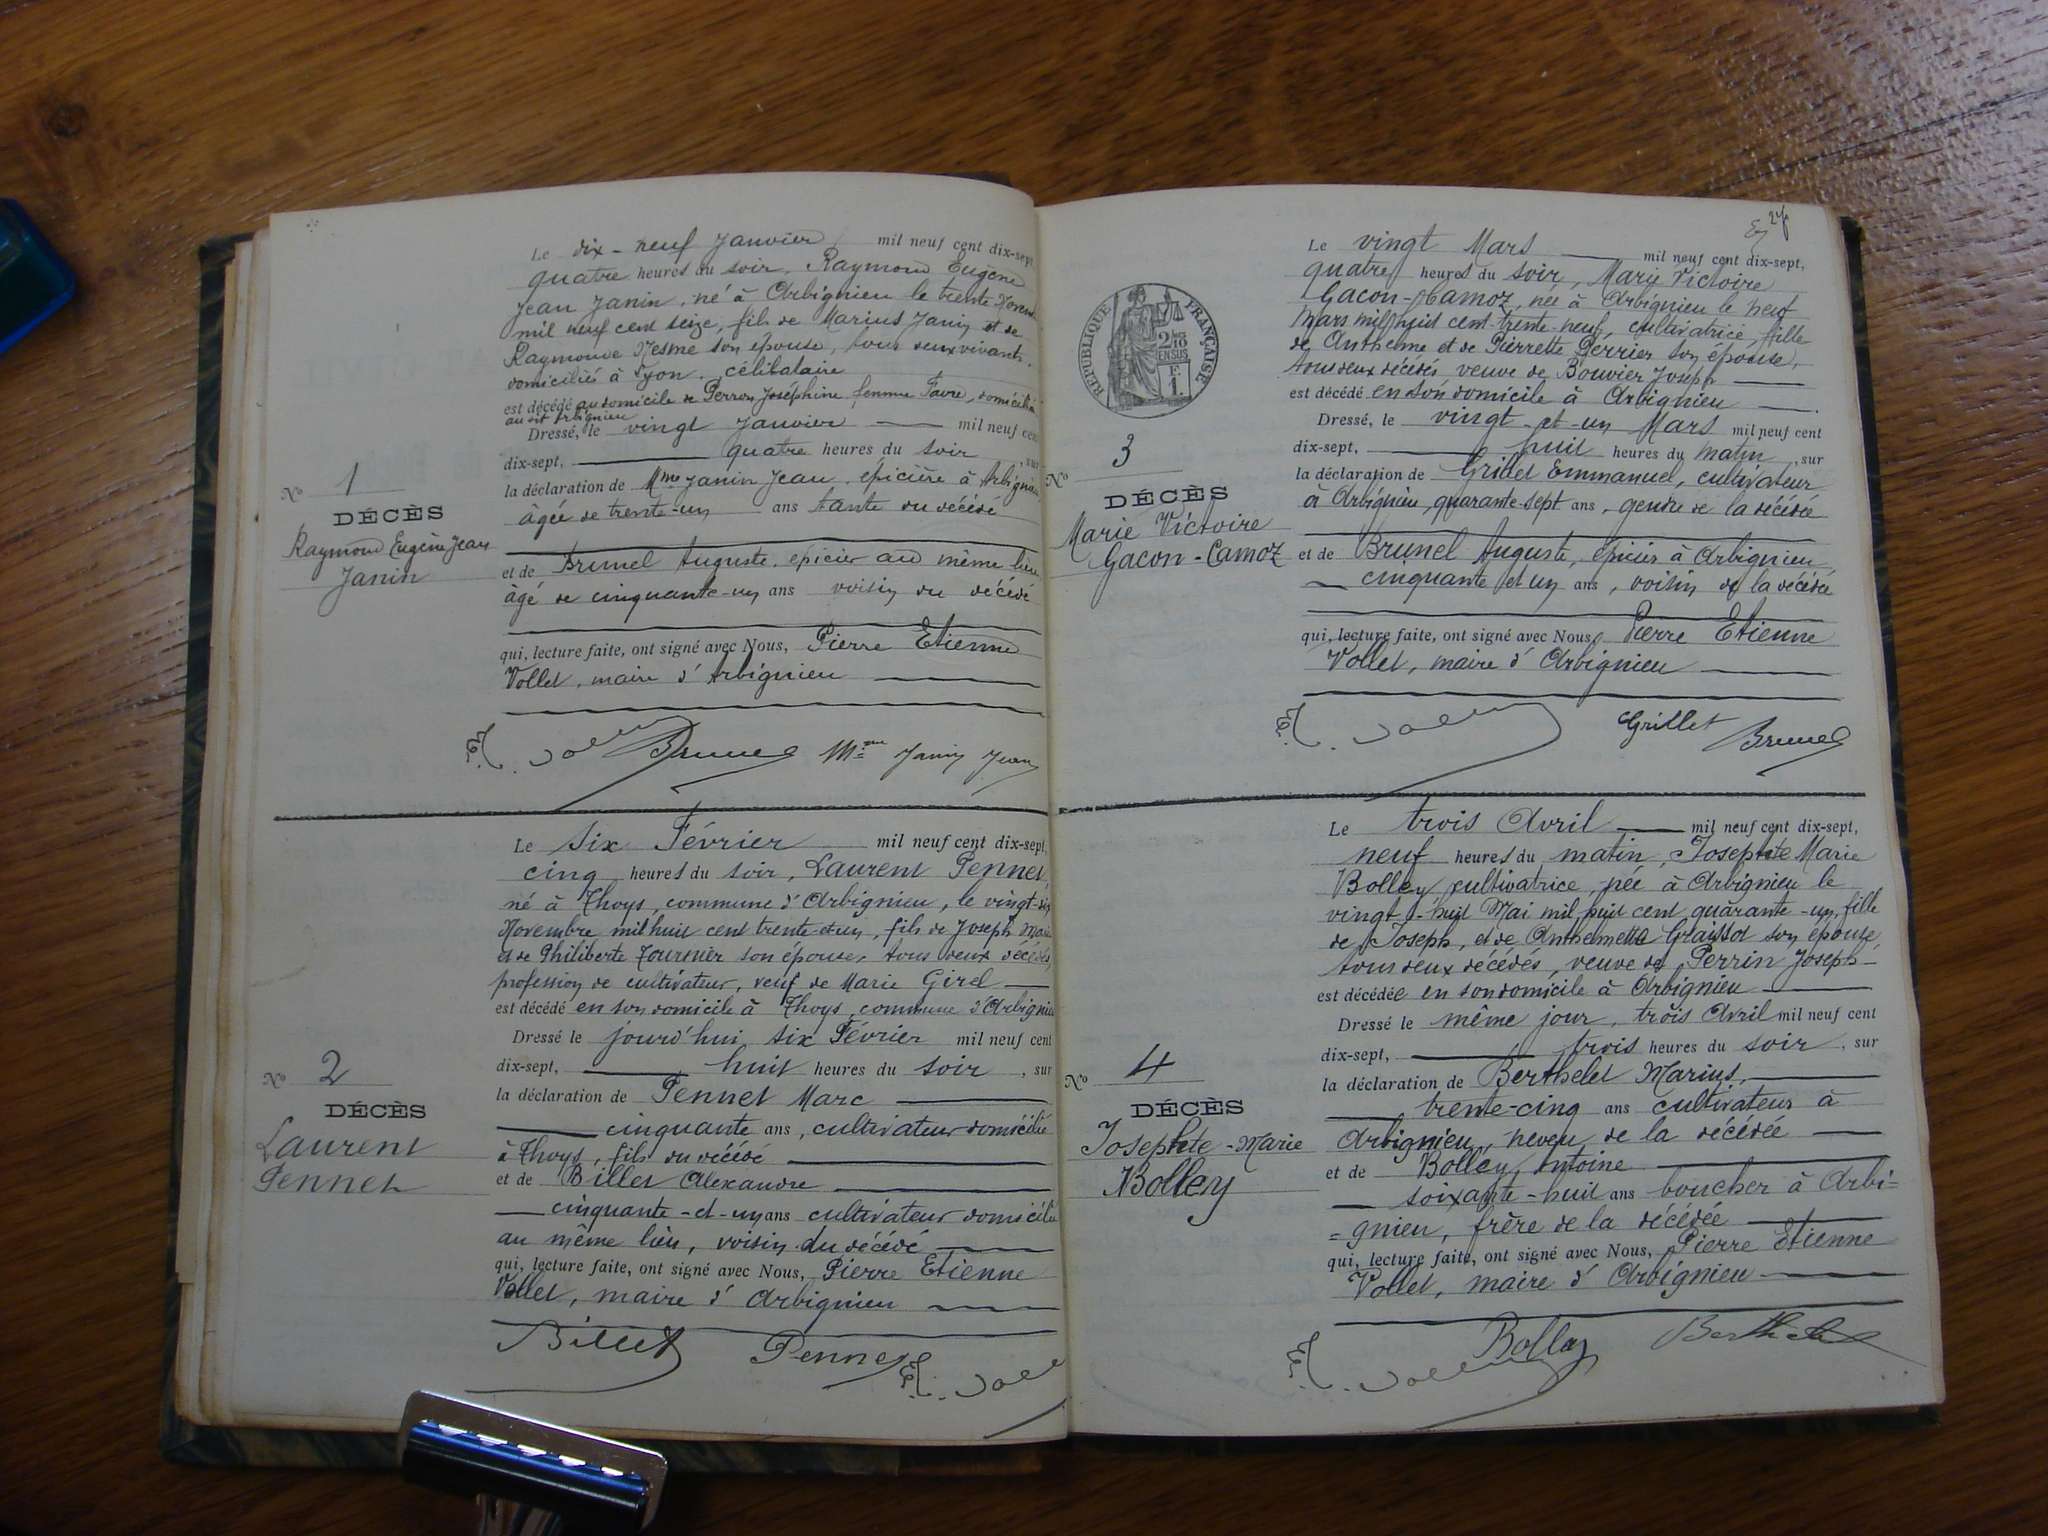 Le dix-neuf Janvier mil neuf cent dix-sept,
quatre heures du soir, Raymond Eugène
Jean Janin, né à Arbignieu le trente Novem
mil neuf cent seize, fils de Marius Janin et de
Raymonde Mesme son épouse, tous deux vivants,
domiciliés à Lyon. célibataire
est décédé au domicile de Perron Joséphine femme Favre, domicilié
au dit Arbignieu
Dressé, le vingt Janvier mil neuf cent
dix-sept, quatre heures du soir, sur
la déclaration de Mme Janin Jean, épicière à Arbignieu
âgée de trente-un ans tante du décédé
et de Brunel Auguste, épicier au même lieu
âgé de cinquante-un ans voisin du décédé
qui, lecture faite, ont signé avec Nous, Pierre Etienne
Vollet, maire d'Arbignieu
Brunel Mme Janin Jean
No 1
DÉCÈS
Raymond Eugène Jean
Janin
Le six Février mil neuf cent dix-sept,
cinq heures du soir, Laurent Pennet,
né à Thoys, commune d'Arbignieu, le vingt-six
Novembre mil huit cent trente et un, fils de Joseph Marie
et de Philiberte Tournier son épouse, tous deux décédés,
profession de cultivateur, veuf de Marie Girel
est décédé en son domicile à Thoys, commune d'Arbignieu
Dressé le jourd'hui six Février mil neuf cent
dix-sept, huit heures du soir, sur
la déclaration de Pennet Marc
cinquante ans, cultivateur domicilié
à Thoys, fils du décédé
et de Billet Alexandre
cinquante-et-un ans cultivateur domicilié
au même lieu, voisin du décédé
qui, lecture faite, ont signé avec Nous, Pierre Etienne
Vollet, maire d'Arbignieu
Billet Pennet
No 2
DÉCÈS
Laurent
Pennet
27
Le vingt Mars mil neuf cent dix-sept,
quatre heures du soir, Marie Victoire
Gacon-Camoz, née à Arbignieu le neuf
Mars mil huit cent trente-neuf, cultivatrice, fille
de Anthelme et de Pierrette Perrier son épouse,
tous deux décédés veuve de Bouvier Joseph
est décédé en son domicile à Arbignieu
Dressé, le vingt-et-un Mars mil neuf cent
dix-sept, huit heures du matin, sur
la déclaration de Grillet Emmanuel, cultivateur
à Arbignieu, quarante-sept ans, gendre de la décédée
et de Brunel Auguste, épicier à Arbignieu,
cinquante et un ans, voisin de la décédée
qui, lecture faite, ont signé avec Nous, Pierre Etienne
Vollet, maire d'Arbignieu
Grillet Brunel
RÉPUBLIQUE FRANÇAISE
2/10
EN SUS
F.
1.
No 3
DÉCÈS
Marie Victoire
Gacon-Camoz
Le trois Avril mil neuf cent dix-sept,
neuf heures du matin, Josephte Marie
Bolley cultivatrice, née à Arbignieu le
vingt-huit Mai mil huit cent quarante-un, fille
de Joseph, et de Anthelmette Graissot son épouse,
tous deux décédés, veuve de Perrin Joseph
est décédée en son domicile à Arbignieu
Dressé le même jour, trois Avril mil neuf cent
dix-sept, trois heures du soir, sur
la déclaration de Berthelet Marius,
trente-cinq ans cultivateur à
Arbignieu, neveu de la décédée
et de Bolley Antoine
soixante-huit ans boucher à Arbi=
=gnieu, frère de la décédée
qui, lecture faite, ont signé avec Nous, Pierre Etienne
Vollet, maire d'Arbignieu
Bolley Berthelet
No 4
DÉCÈS
Josephte-Marie
Bolley